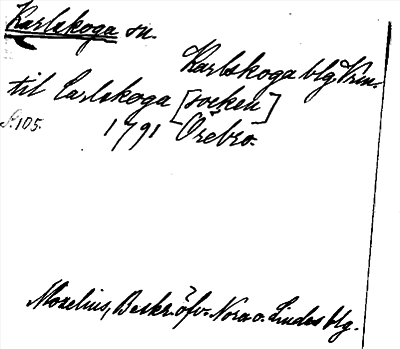 Karlskoga sn.
Karlskoga blg Krm.
til Carlskoga [socken]
S. 105.
1791 Örebro.
Moxelius, Beskr. öfv. Nora o. Lindes blg.